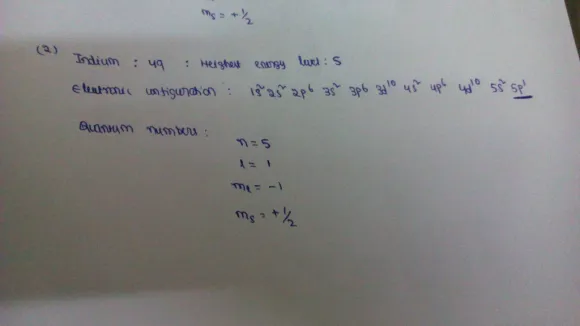 ms = +1/2
(2) Indium : 49 : Heighest energy level : 5
Electronic configuration : 1s² 2s² 2p⁶ 3s² 3p⁶ 3d¹⁰ 4s² 4p⁶ 4d¹⁰ 5s² 5p¹
Quantum numbers :
n = 5
l = 1
ml = -1
ms = +1/2